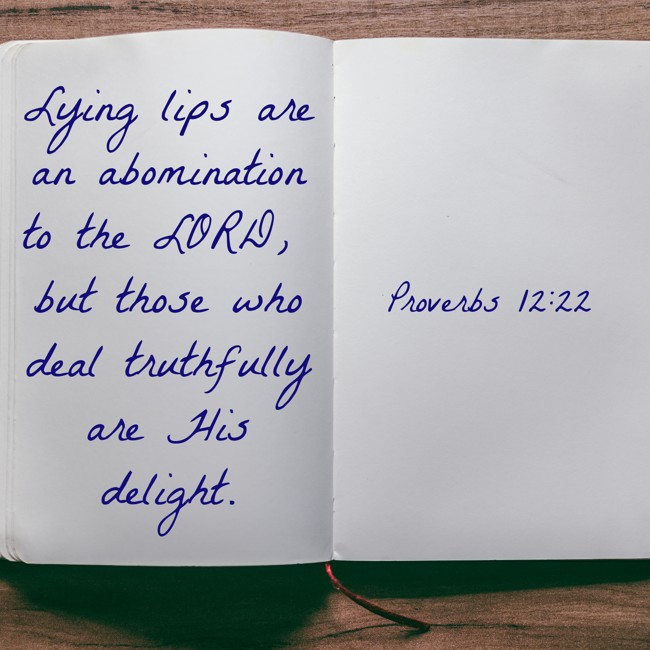 Lying lips are
an abomination
to the LORD,
but those who
deal truthfully
are His
delight.
Proverbs 12:22